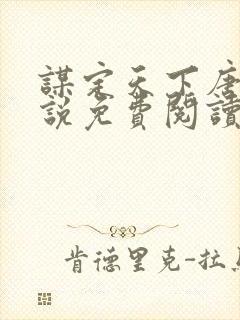 謀定天下唐
說免費閱讀
肯德里克-拉